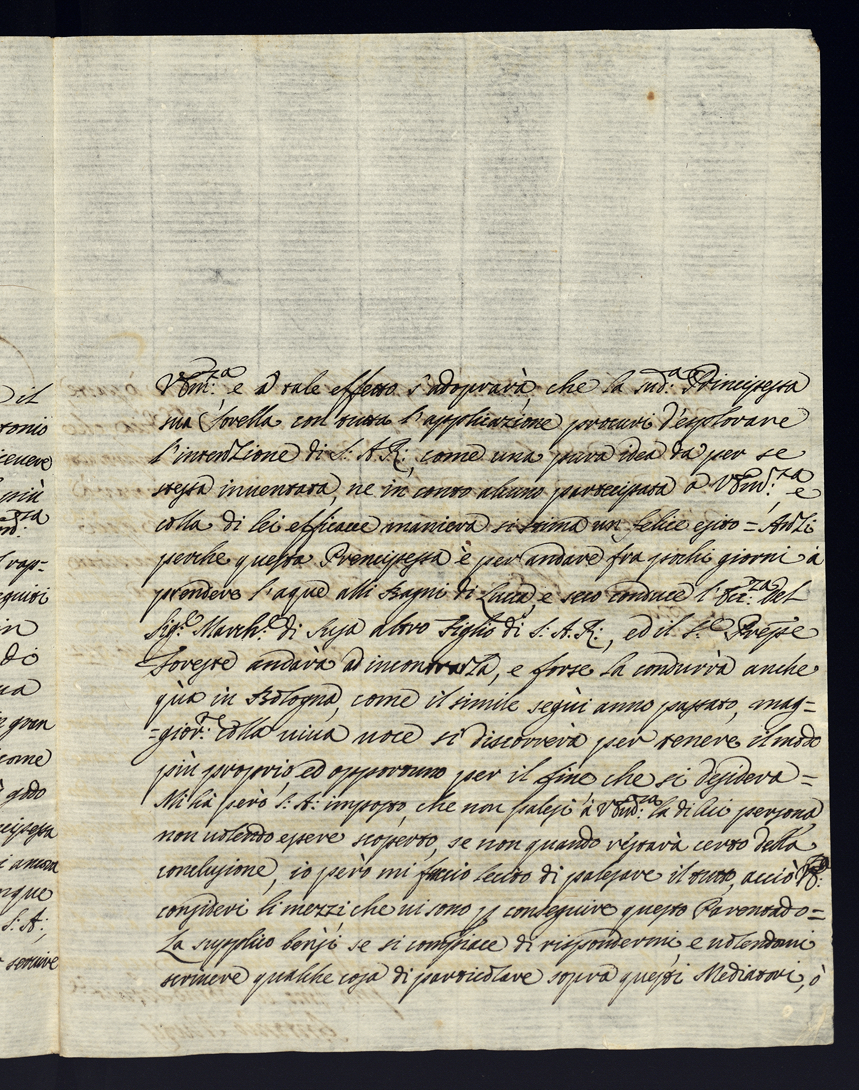 V. Em.za e à tale effetto s'adoprarà, che la sud.a Principessa
sua Sorella con tutta l'applicazione procuri d'esplorare
l'intenzione di S: A: R:, come una pura idea da per se
stessa inventata, ne in conto alcuno participata à V. Em.za, e
colla di lei efficace maniera si stima un felice esito = Anzi
perche questa Prencipessa è per andare fra pochi giorni à
prendere l'aque alli Bagni di Lucca, e seco conduce l'Ecc.za del
Sig.r March.e di Susa altro Figlio di S: A: R:, ed il S.r Prēpe
Foresto andarà ad incontrarla, e forse la condurrà anche
quà in Bologna, come il simile seguì anno passato, mag=
=gior.te colla viva voce si discorrerà per tenere il modo
più proprio, ed opportuno per il fine che si desidera =
Mi hà però S: A: imposto, che non palesi à V. Em.za la di lui persona
non volendo essere scoperto, se non quando restarà certo della
conclusione, io però mi faccio lecito di palesare il tutto, acciò V. E.
consideri li mezzi, che vi sono p conseguire questo Parentado =
La supplico bensì se si compiace di rispondermi, e volendomi
scrivere qualche cosa di particolare sopra questi Mediatori, ò